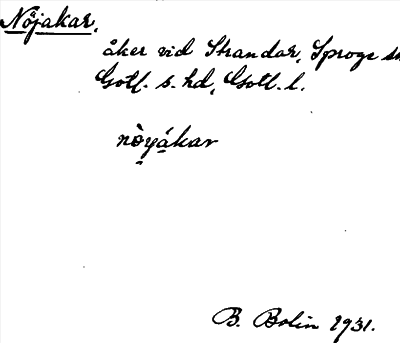 Nöjakar,
åker vid Strandar, Sproge sn
Gotl. s. hd, Gotl. l.
nòyákar
B. Bolin 1931.